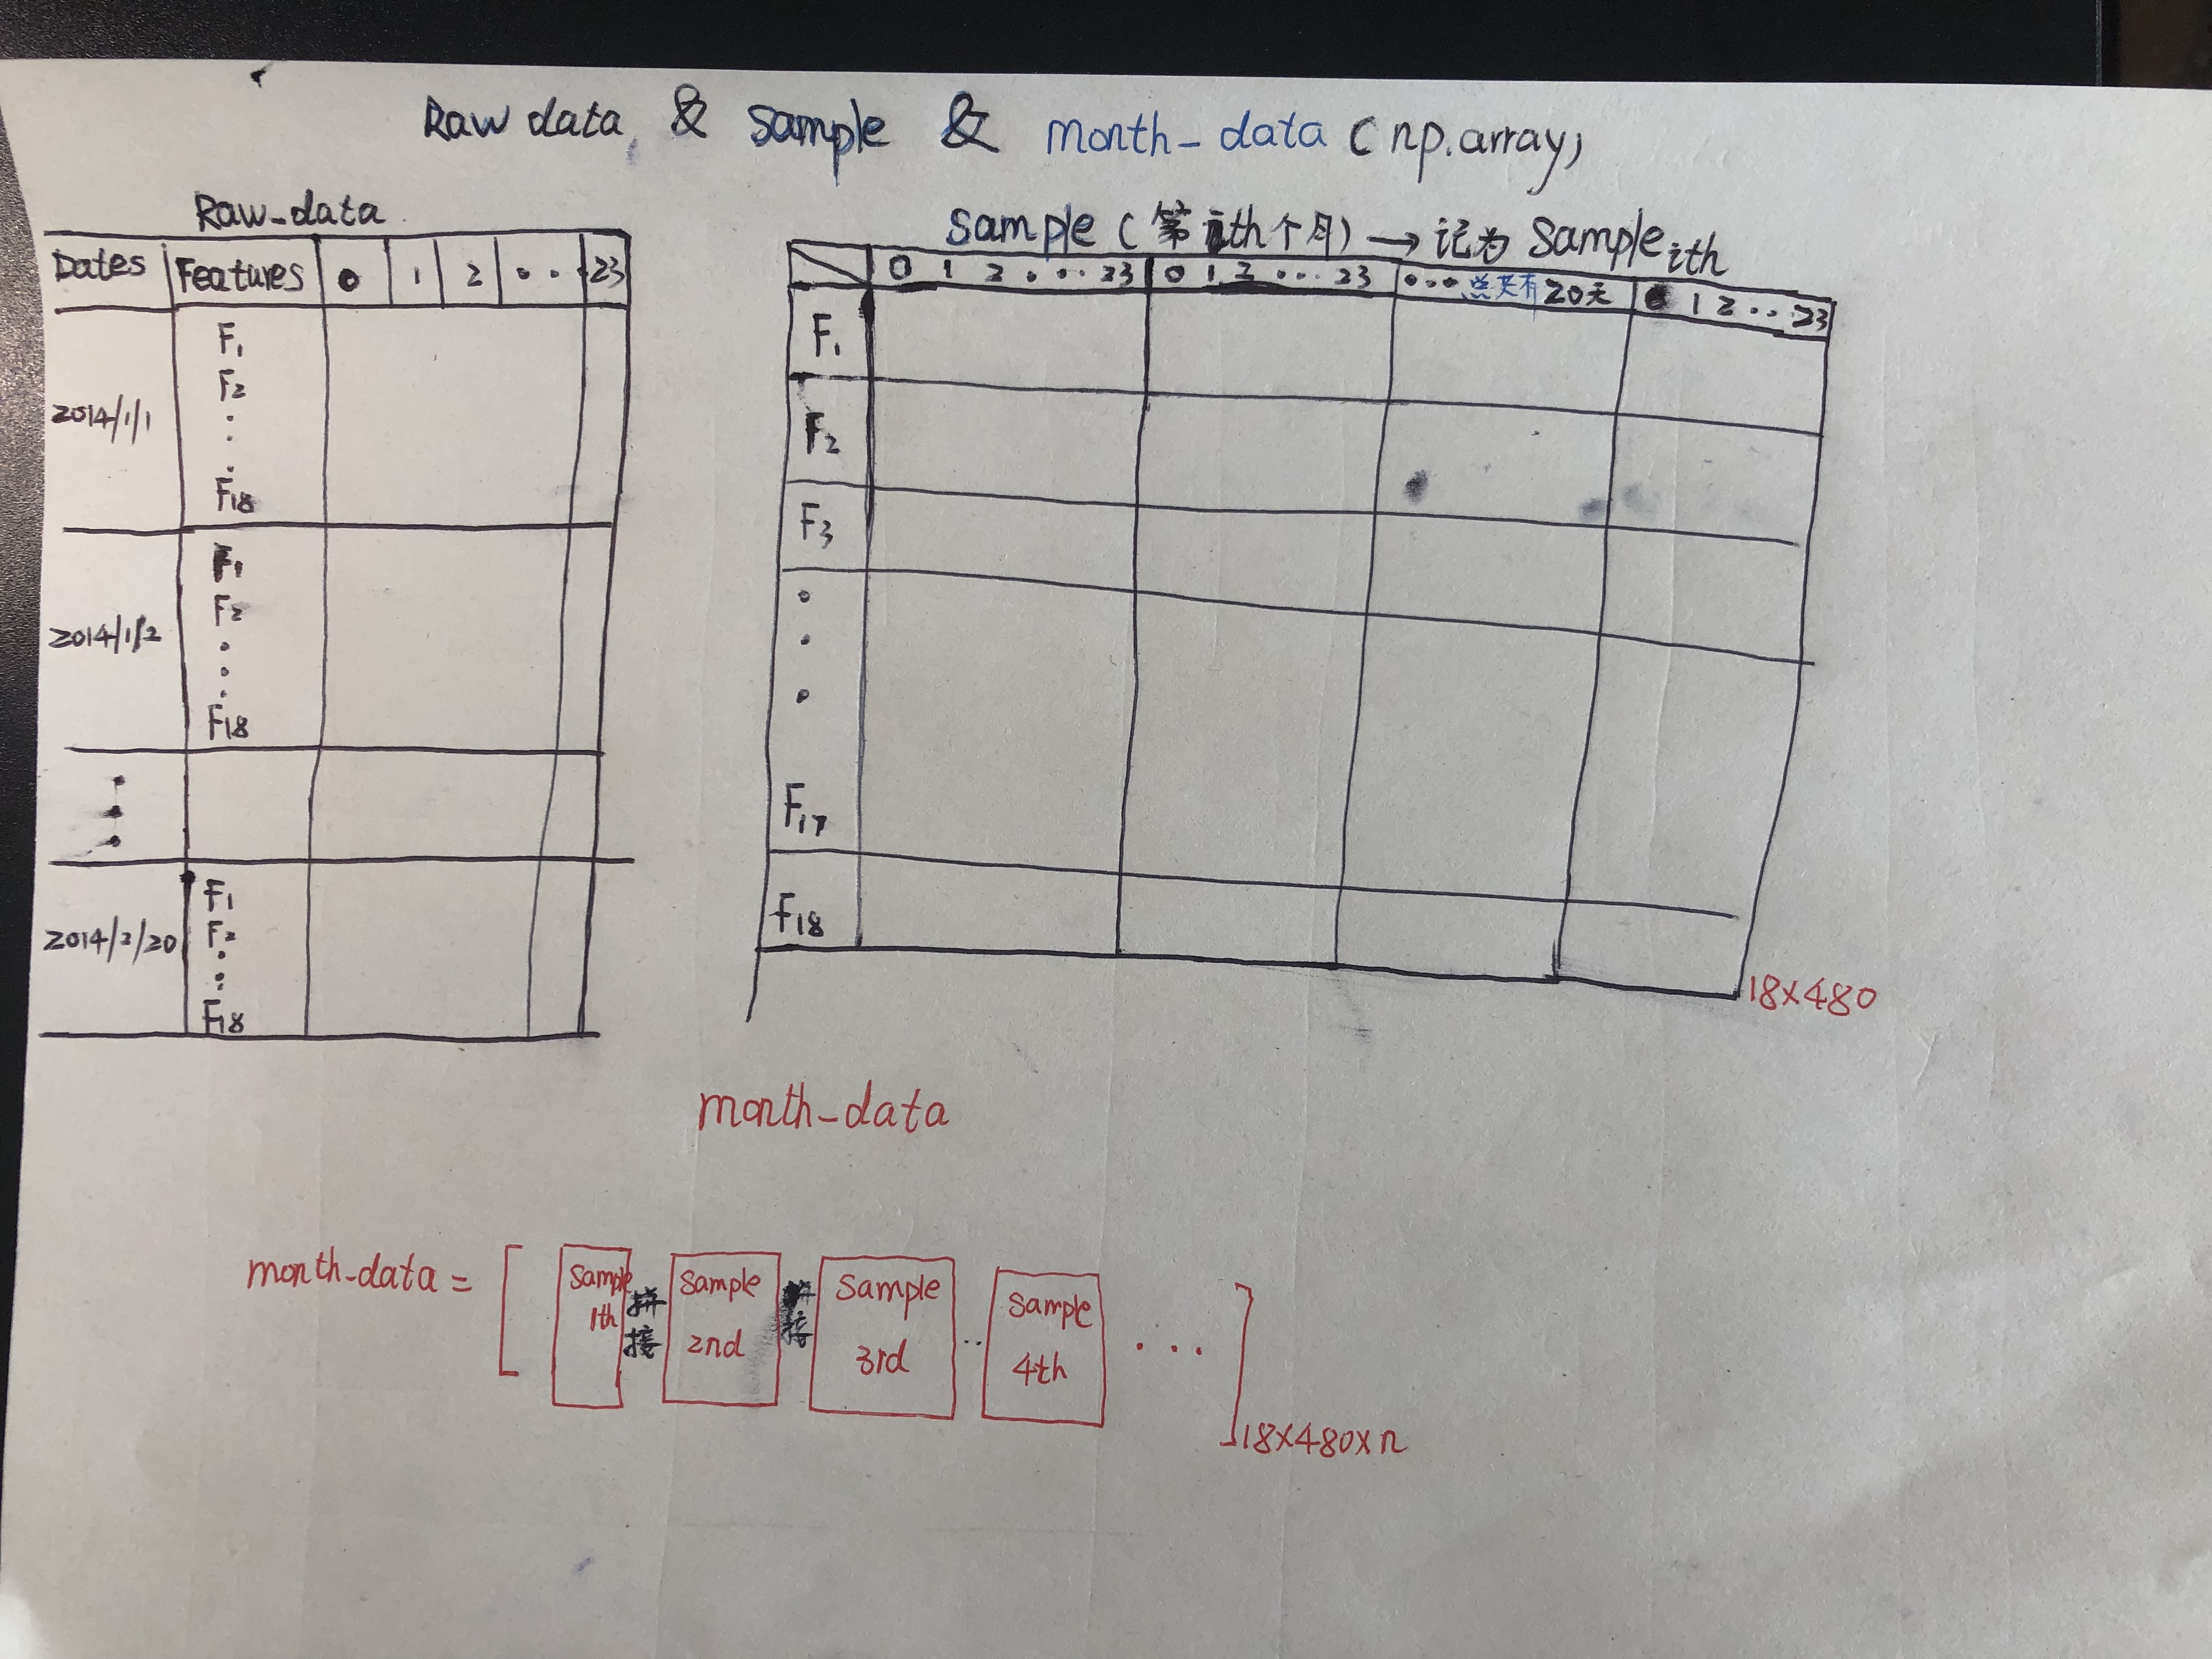 Raw data & sample & month-data (np.array)
Raw-data
Dates Features 0 1 2 ... 23
2014/1/1
F1
F2
⋮
F18
2014/1/2
F1
F2
⋮
F18
⋮
2014/2/20
F1
F2
⋮
F18
Sample (第ith个月) → 记为 Sample ith
0 1 2 ... 23 0 1 2 ... 23 ... 有 20天 0 1 2 ... 23
F1
F2
F3
⋮
F17
F18
18×480
month-data
month-data = [ Sample 1th 拼接 Sample 2nd 拼接 Sample 3rd .. Sample 4th ... ] 18×480×n